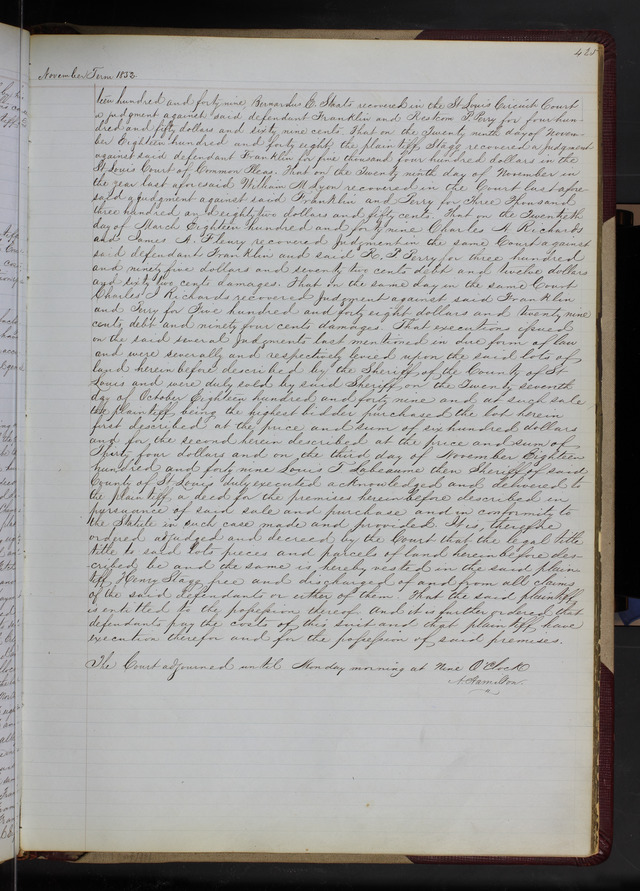 November Term 1852
teen hundred and forty nine Bernardus C. Staats recovered in the St Louis Circuit Court
a judgment against said defendant Franklin and Restcom P Perry for four hun-
dred and fifty dollars and sixty nine cents. That on the Twenty ninth day of Novem-
ber Eighteen hundred and forty eight the plaintiff Stagg recovered a judgment
against said defendant Franklin for five thousand four hundred dollars in the
St Louis Court of Common Pleas. That on the Twenty ninth day of November in
the year last aforesaid William M Lyon recovered in the Court last afore-
said a judgment against said Franklin and Perry for Three Thousand
three hundred and eighty two dollars and fifty cents. That on the Twentieth
day of March Eighteen hundred and forty nine Charles Richards
and James A. Fleury recovered Judgment in the same Court against
said defendant Franklin and said R. P Perry for three hundred
and ninety five dollars and seventy two cents debt and Twelve dollars
and sixty two cents damages. That on the same day in the same Court
Charles Richards recovered Judgment against said Franklin
and Perry for Five hundred and forty eight dollars and twenty nine
cents debt and ninety four cents damages. That executions issued
on the said several Judgments last mentioned in due form of law
and were severally and respectively levied upon the said lots of
land herein before described by the Sheriff of the County of St
Louis and were duly sold by said Sheriff on the Twenty seventh
day of October Eighteen hundred and forty nine and at such sale
the plaintiff being the highest bidder purchased the lot herein
first described at the price and sum of six hundred dollars
and for the second herein described at the price and sum of
Thirty four dollars and on the third day of November Eighteen
hundred and forty nine Louis T Labeaume then Sheriff of said
County of St Louis duly executed acknowledged and delivered to
the plaintiff a deed for the premises herein before described in
pursuance of said sale and purchase and in conformity to
the Statute in such case made and provided. It is, therefore
ordered adjudged and decreed by the Court that the legal title
title to said lots pieces and parcels of land herein before des-
cribed be and the same is hereby vested in the said plain-
tiff, Henry Stagg free and discharged of and from all claims
of the said defendants or either of them. That the said plaintiff
is entitled to the possession thereof. And it is further ordered that
defendants pay the costs of this suit and that plaintiff have
execution therefor and for the possession of said premises.
The Court adjourned until Monday morning at Nine O'Clock
A. Hamilton.